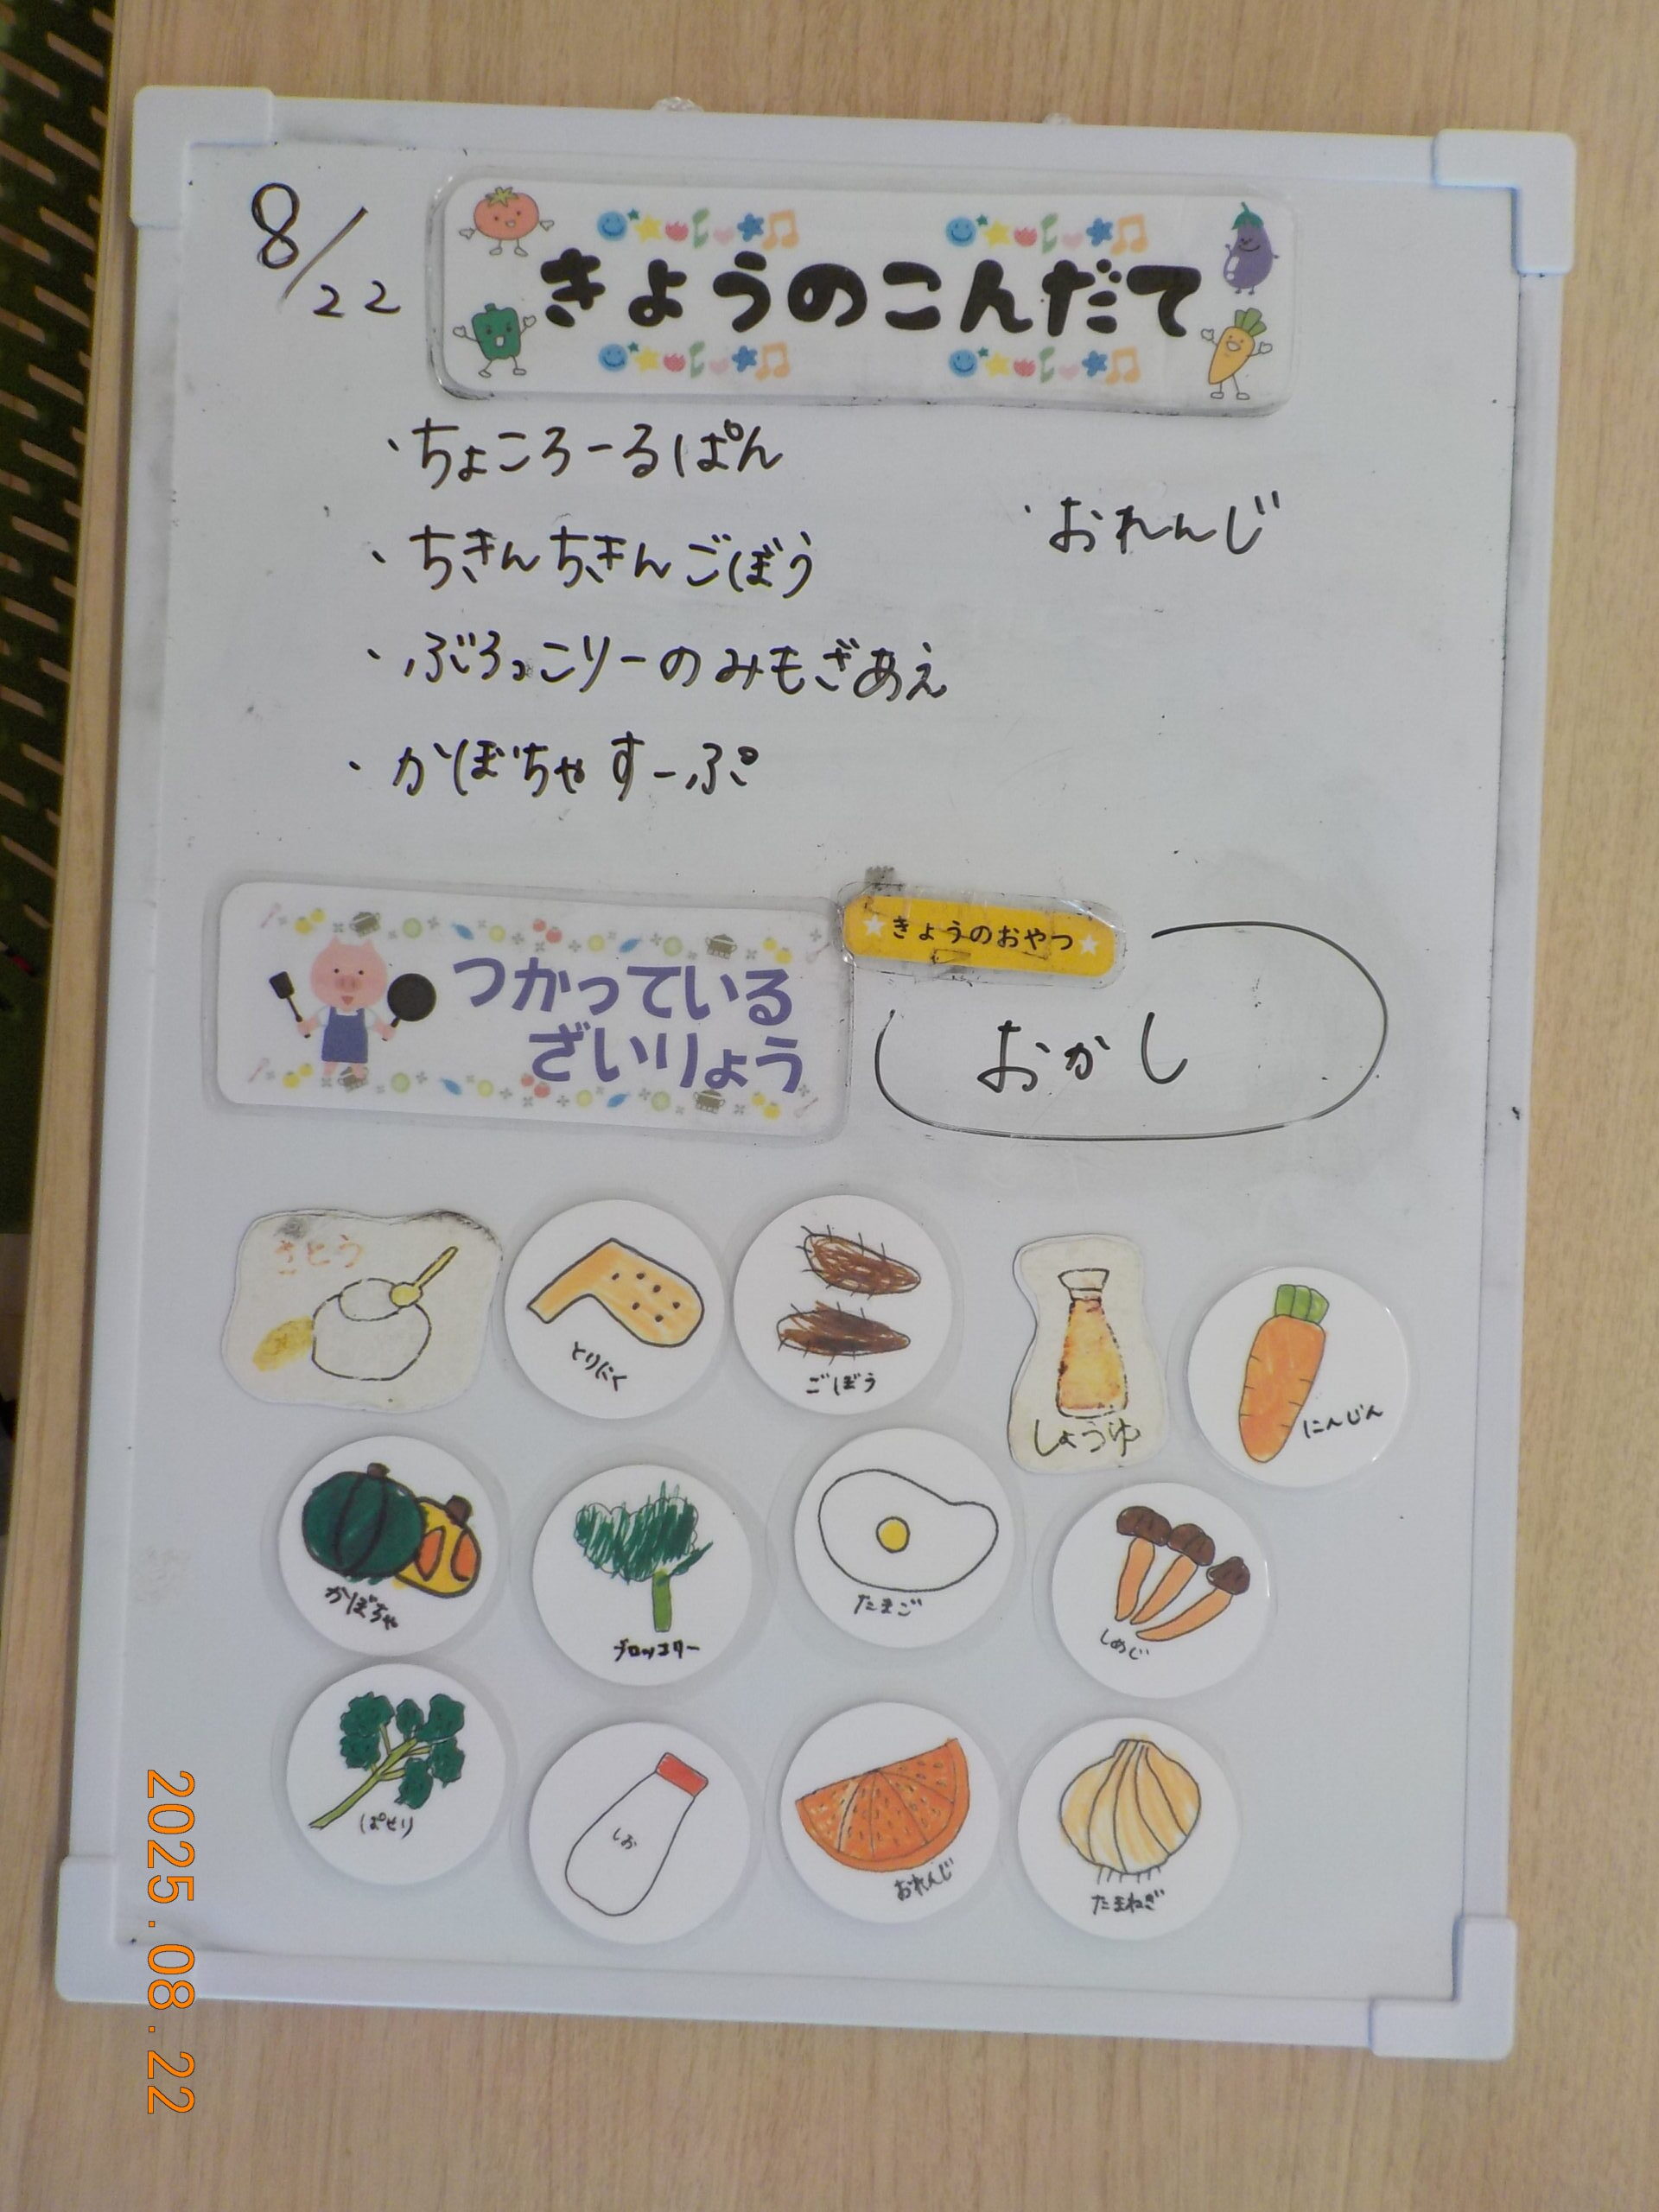 8/22
きょうのこんだて
・ちょころーるぱん
・おれんじ
・ちきんちきんごぼう
・ぶろっこりーのみもざあえ
・かぼちゃすーぷ
つかっている
ざいりょう
きょうのおやつ
おかし
さとう
とりにく
ごぼう
しょうゆ
にんじん
かぼちゃ
ブロッコリー
たまご
しめじ
ぱせり
しお
おれんじ
たまねぎ
2025.08.22